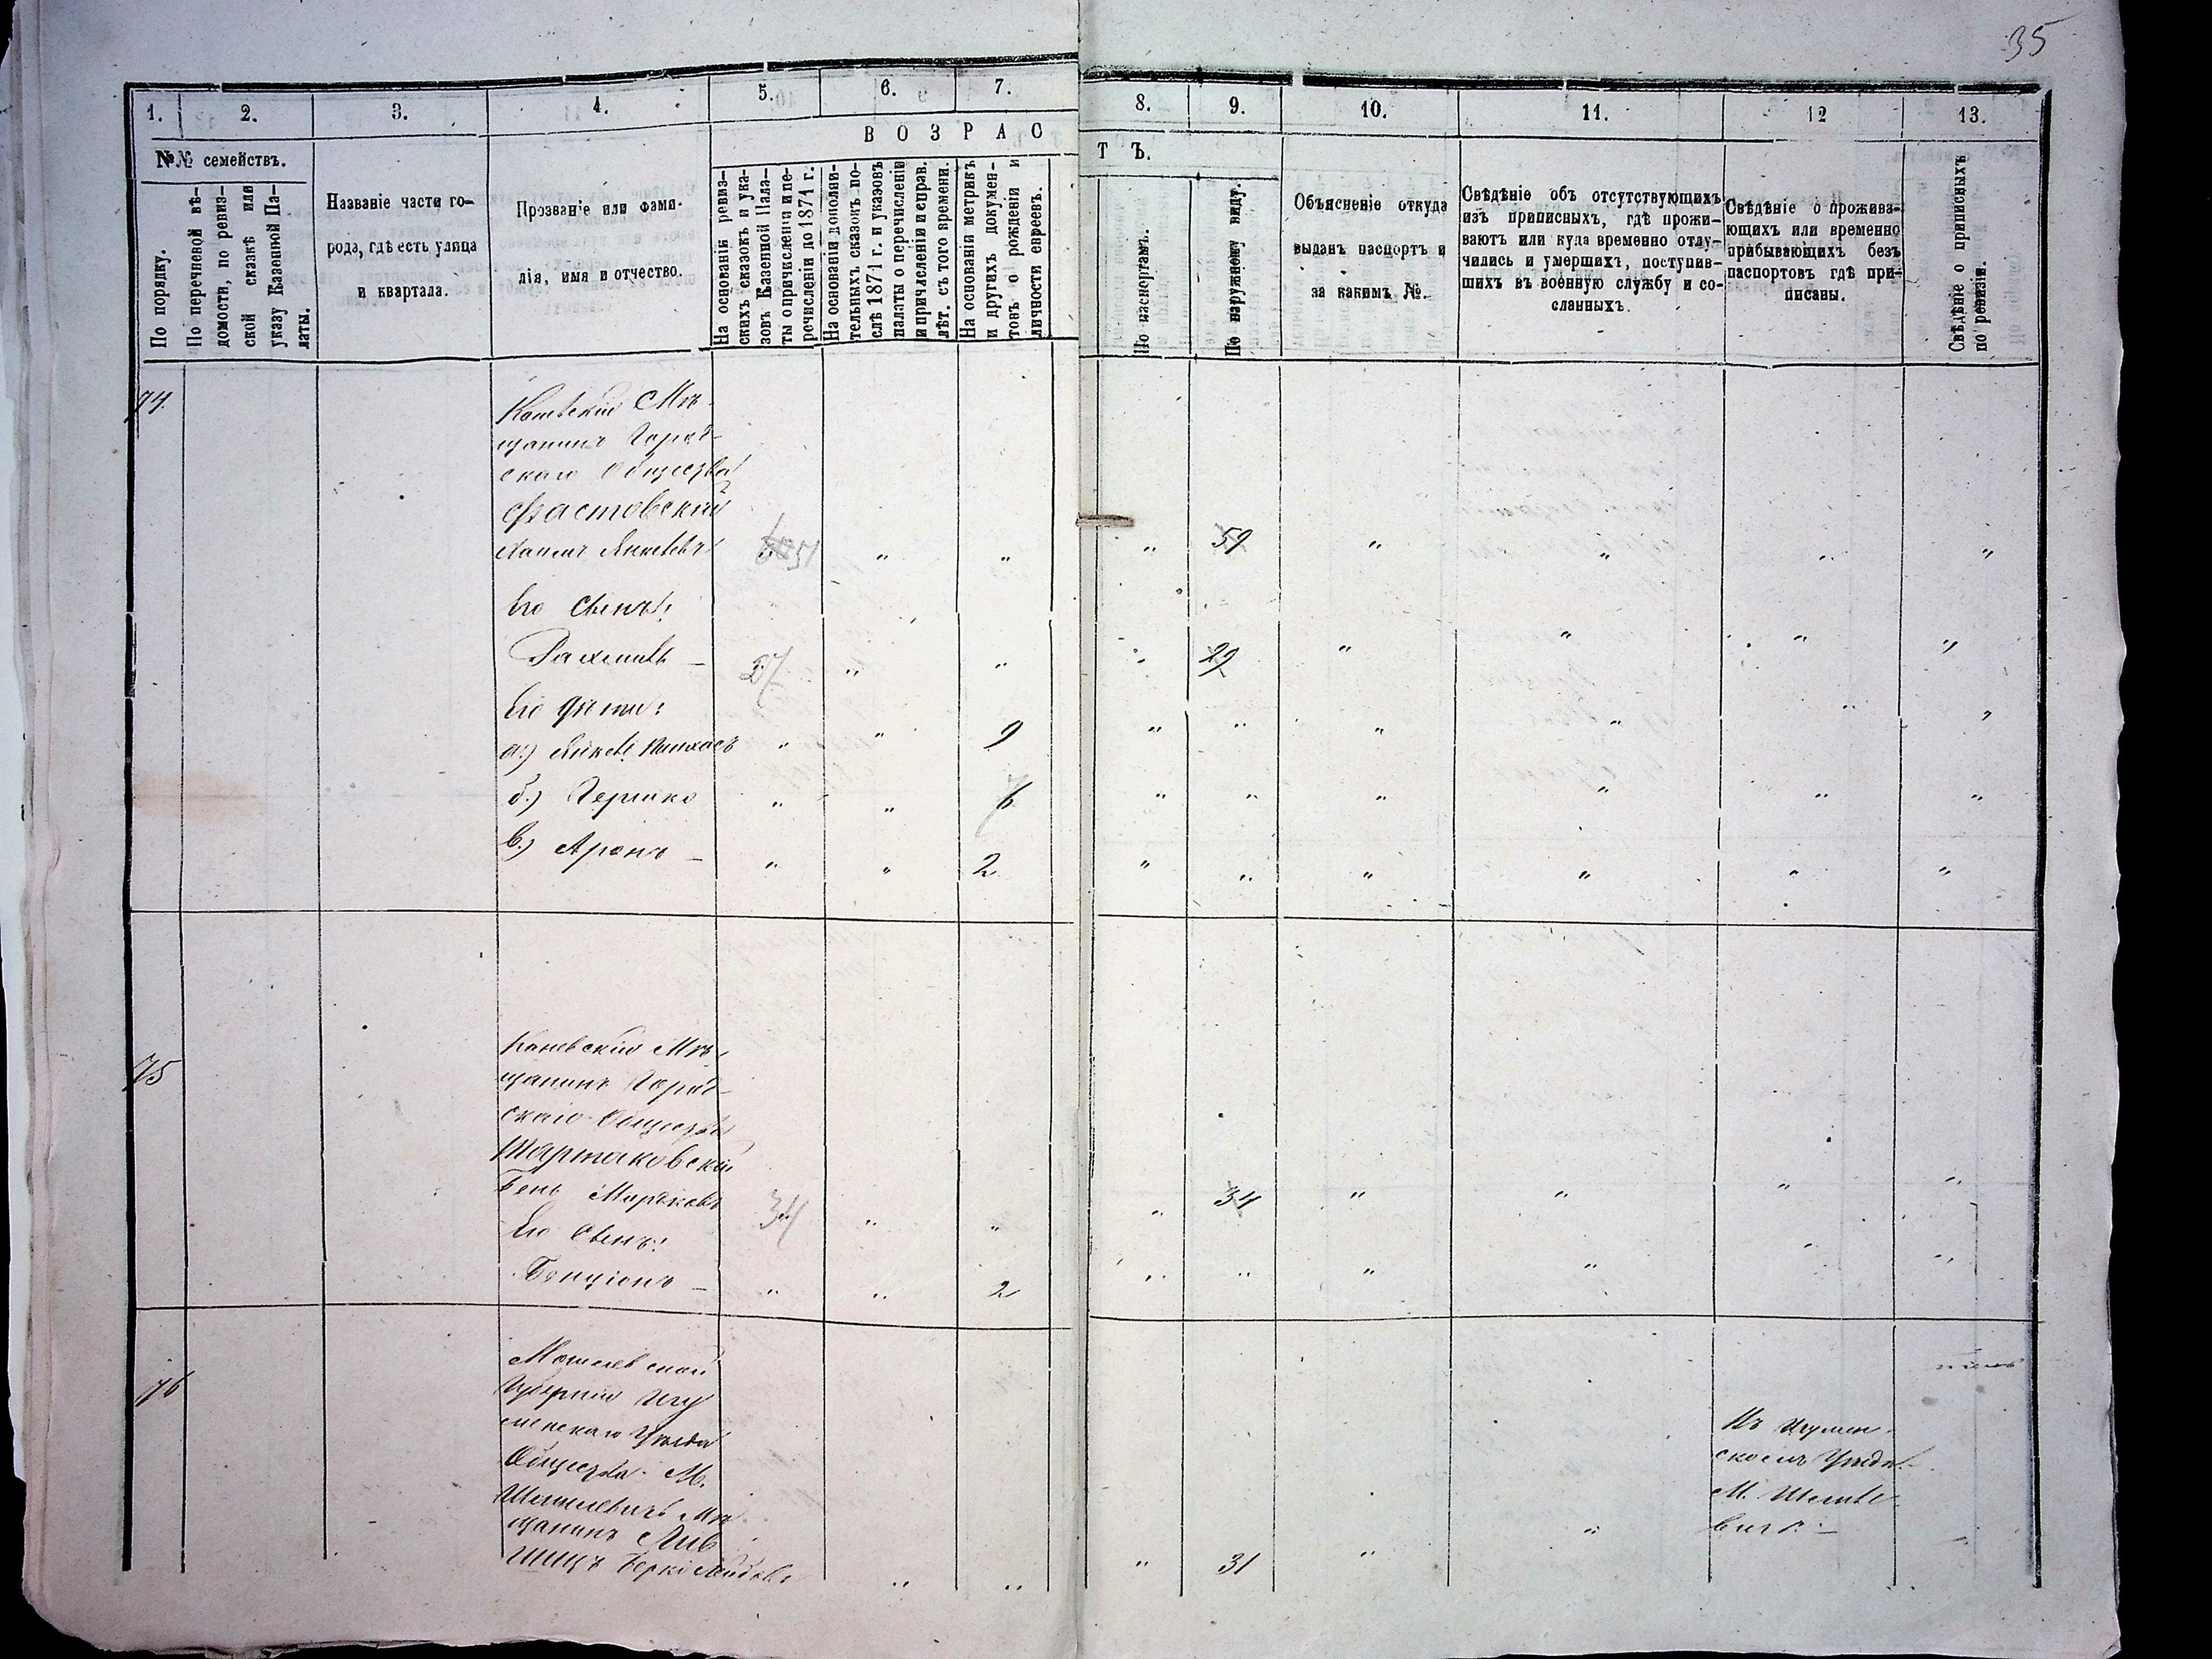 35
1. 2. 3. 4. 5. 6. 7. 8. 9. 10. 11. 12 13.
В О З Р А С Т Ъ.
№№ семействъ.
По порядку.
По перечневой вѣ-
домости, по ревиз-
ской сказкѣ или
указу Казенной Па-
латы.
Названіе части го-
рода, гдѣ есть улица
и квартала.
Прозваніе или фами-
лія, имя и отчество.
На основаніи ревиз-
скихъ сказокъ и ука-
зовъ Казенной Пала-
ты о причисленіи и пе-
речисленіи до 1871 г.
На основаніи дополни-
тельныхъ сказокъ по-
слѣ 1871 г. и указовъ
палаты о перечисленіи
и причленіи и справ.
лѣт. съ того времени.
На основаніи метрикъ
и другихъ докумен-
товъ о рожденіи и
личности евреевъ.
По паспортамъ.
По наружному виду.
Объясненіе откуда
выданъ паспортъ и
за какимъ №.
Свѣдѣніе объ отсутствующихъ
изъ приписныхъ, гдѣ прожи-
ваютъ или куда временно отлу-
чились и умершихъ, поступив-
шихъ въ военную службу и со-
сланныхъ.
Свѣдѣніе о прожива-
ющихъ или временно
прибывающихъ безъ
паспортовъ гдѣ при-
писаны.
Свѣдѣніе о приписныхъ
по ревизіи.
74.
Мѣ-
щанинъ Город-
скаго Общества
Фастовскій
Янкелевъ 51 " " " 59 " " " "
Его Сынъ:
" " " 29 " " " "
Его дѣти:
а.) Янкель Пинхасъ " " 9 " " " " " "
б.) Гершко " " 6 " " " " " "
в.) Аронъ — " " 2 " " " " " "
75
Каневскій Мѣ-
щанинъ Город-
скаго Общества
Тартаковскій
Бень Марьковъ 34 " " " 34 " " " "
Его Сынъ:
Бенціонъ — " " 2 " " " " " "
76
Могилевской
Губерніи Игу
менскаго Уѣзда
Общества М.
Шемелевичъ Мѣ
щанинъ Лив
шицъ Берко " " " 31 " " "
Въ Игумен-
скомъ Уѣздѣ
М. Шеме
вичѣ —